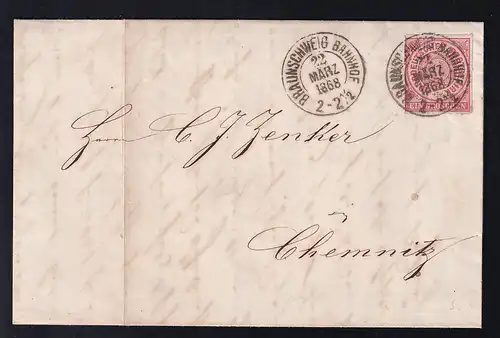 BRAUNSCHWEIG BAHNHOF
22
MÄRZ
1868
2-2½
BRAUNSCHWEIG BAHNHOF
22
MÄRZ
1868
2-2½
Herrn C. J. Zenker
in
Chemnitz